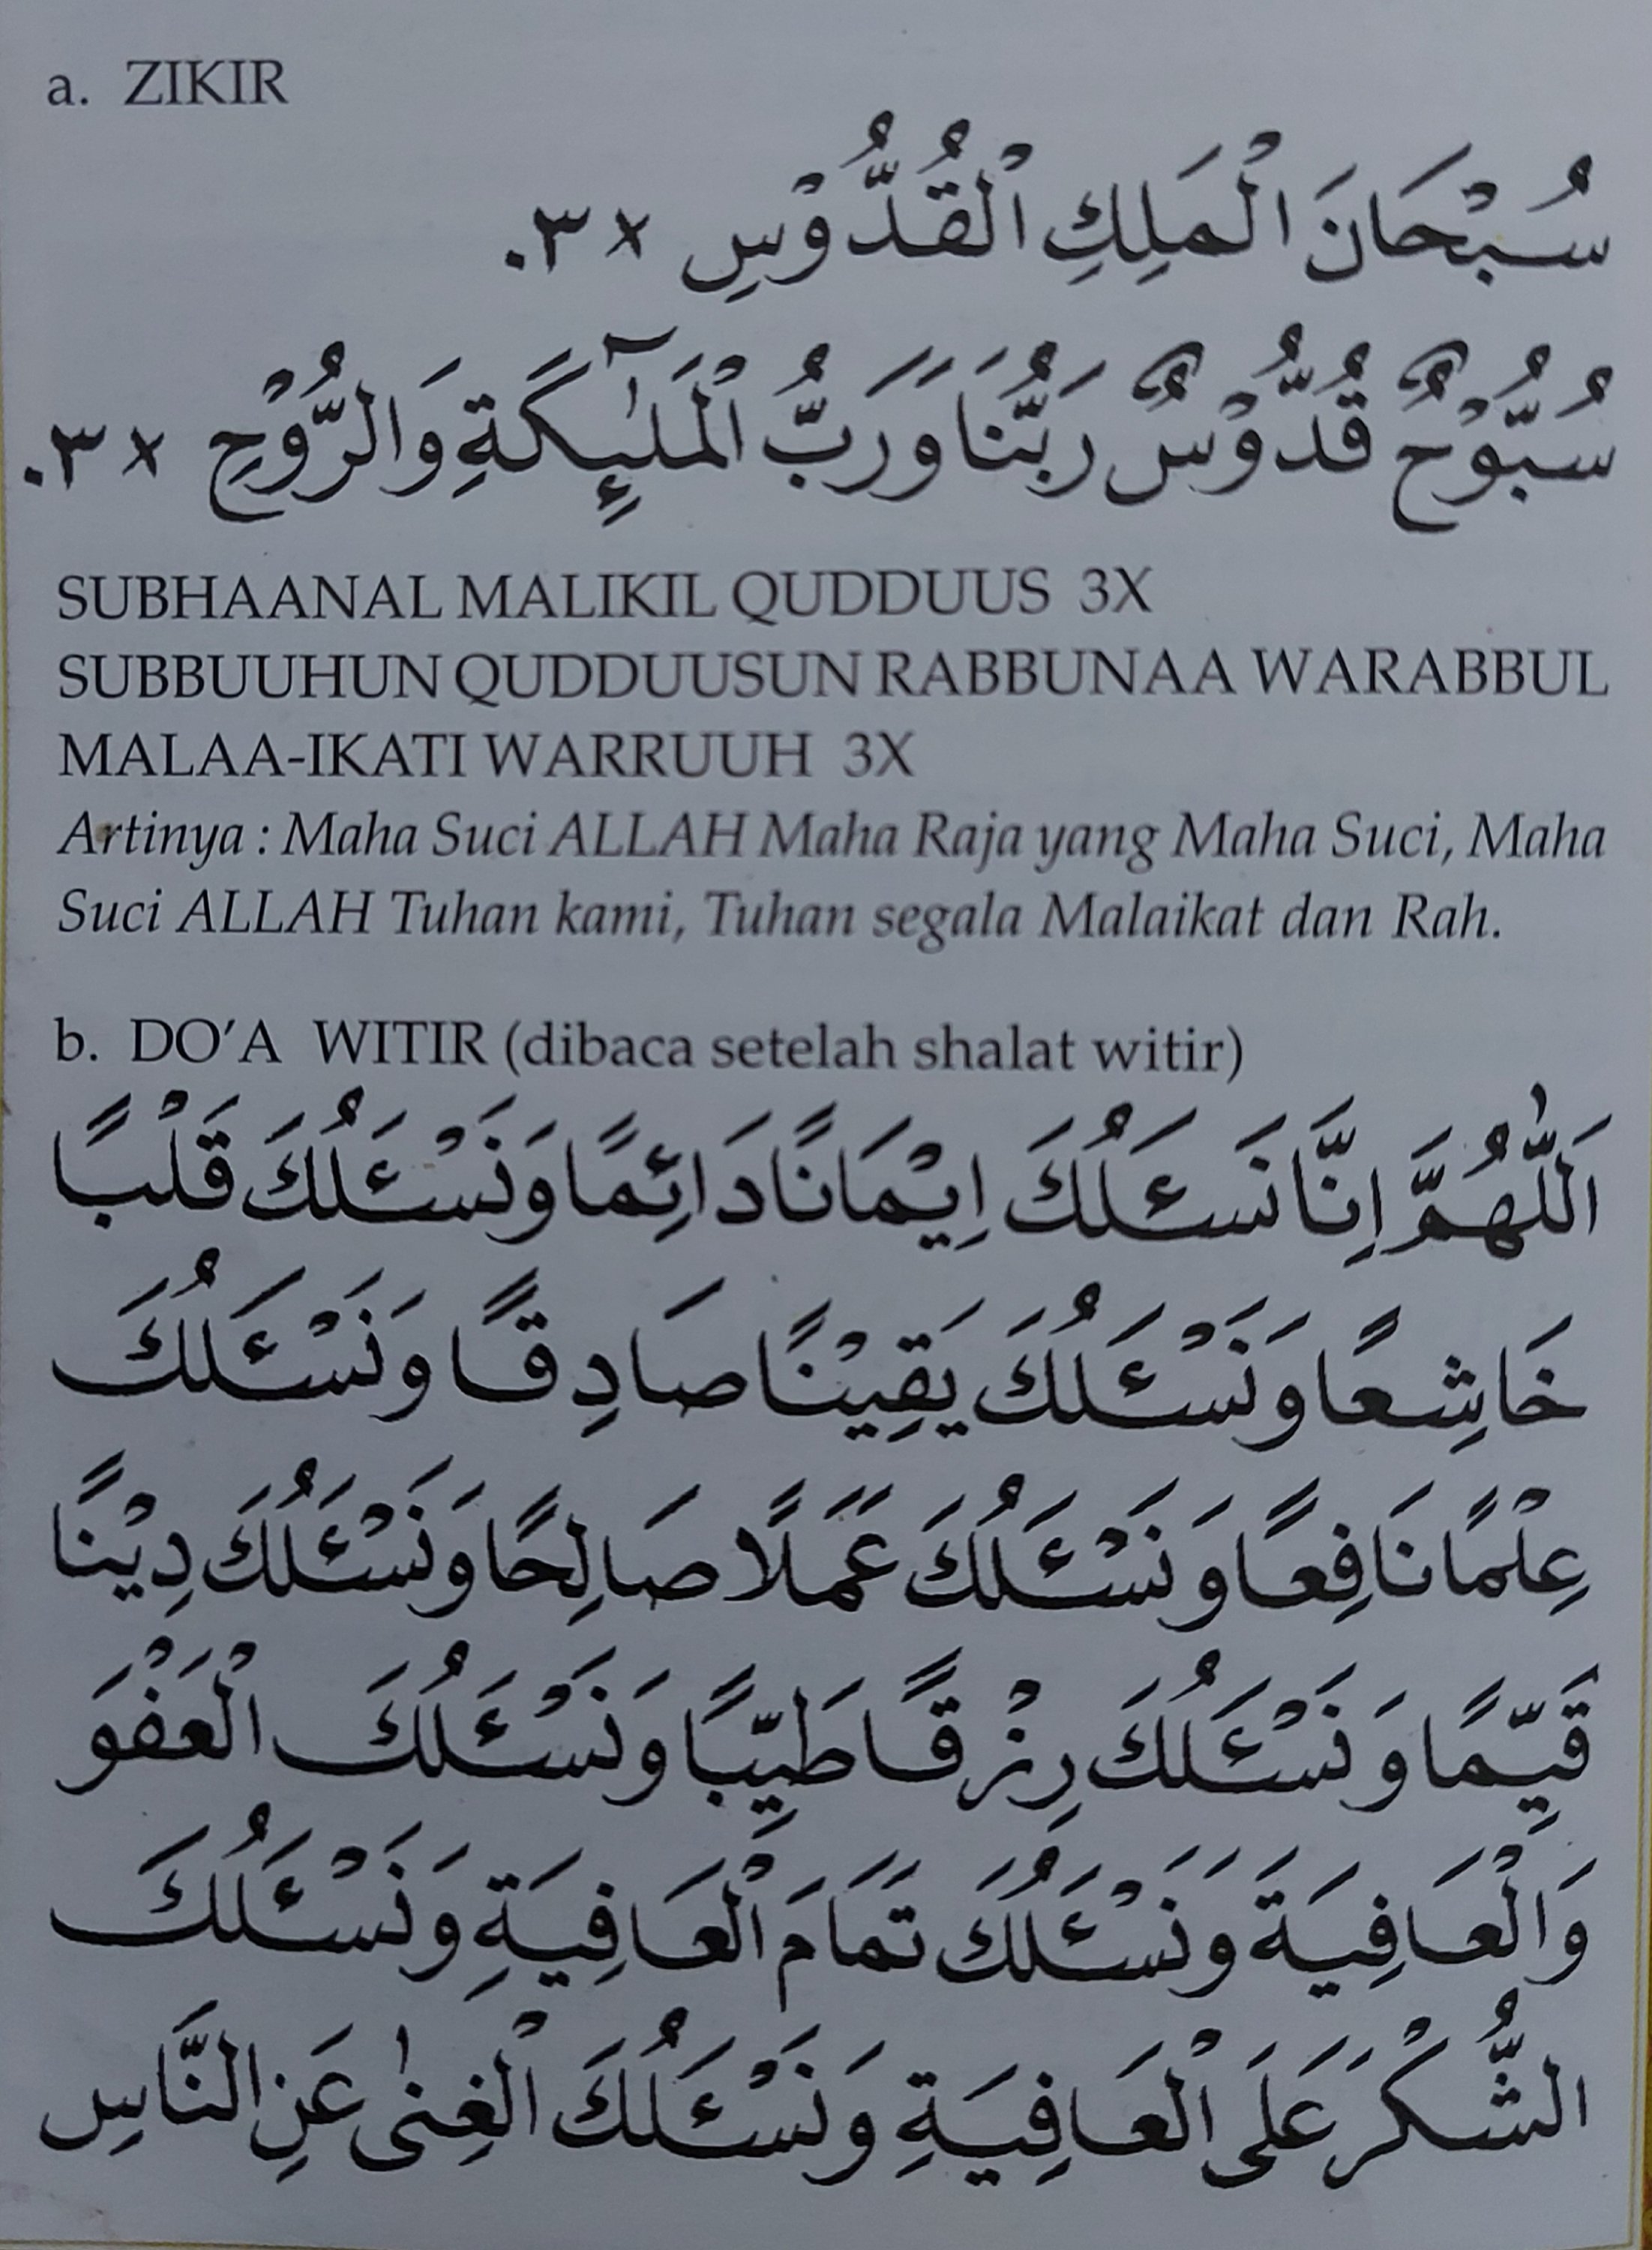 a. ZIKIR
سُبْحَانَ الْمَلِكِ الْقُدُّوْسِ × ٣.
سُبُّوْحٌ قُدُّوْسٌ رَبُّنَا وَرَبُّ الْمَلٰٓئِكَةِ وَالرُّوْحِ × ٣.
SUBHAANAL MALIKIL QUDDUUS 3X
SUBBUUHUN QUDDUUSUN RABBUNAA WARABBUL
MALAA-IKATI WARRUUH 3X
Artinya : Maha Suci ALLAH Maha Raja yang Maha Suci, Maha
Suci ALLAH Tuhan kami, Tuhan segala Malaikat dan Rah.
b. DO'A WITIR (dibaca setelah shalat witir)
اَللّٰهُمَّ اِنَّا نَسْـَٔلُكَ اِيْمَانًا دَائِمًا وَنَسْـَٔلُكَ قَلْبًا
خَاشِعًا وَنَسْـَٔلُكَ يَقِيْنًا صَادِقًا وَنَسْـَٔلُكَ
عِلْمًا نَافِعًا وَنَسْـَٔلُكَ عَمَلًا صَالِحًا وَنَسْـَٔلُكَ دِيْنًا
قَيِّمًا وَنَسْـَٔلُكَ رِزْقًا طَيِّبًا وَنَسْـَٔلُكَ الْعَفْوَ
وَالْعَافِيَةَ وَنَسْـَٔلُكَ تَمَامَ الْعَافِيَةِ وَنَسْـَٔلُكَ
الشُّكْرَ عَلَى الْعَافِيَةِ وَنَسْـَٔلُكَ الْغِنٰى عَنِ النَّاسِ